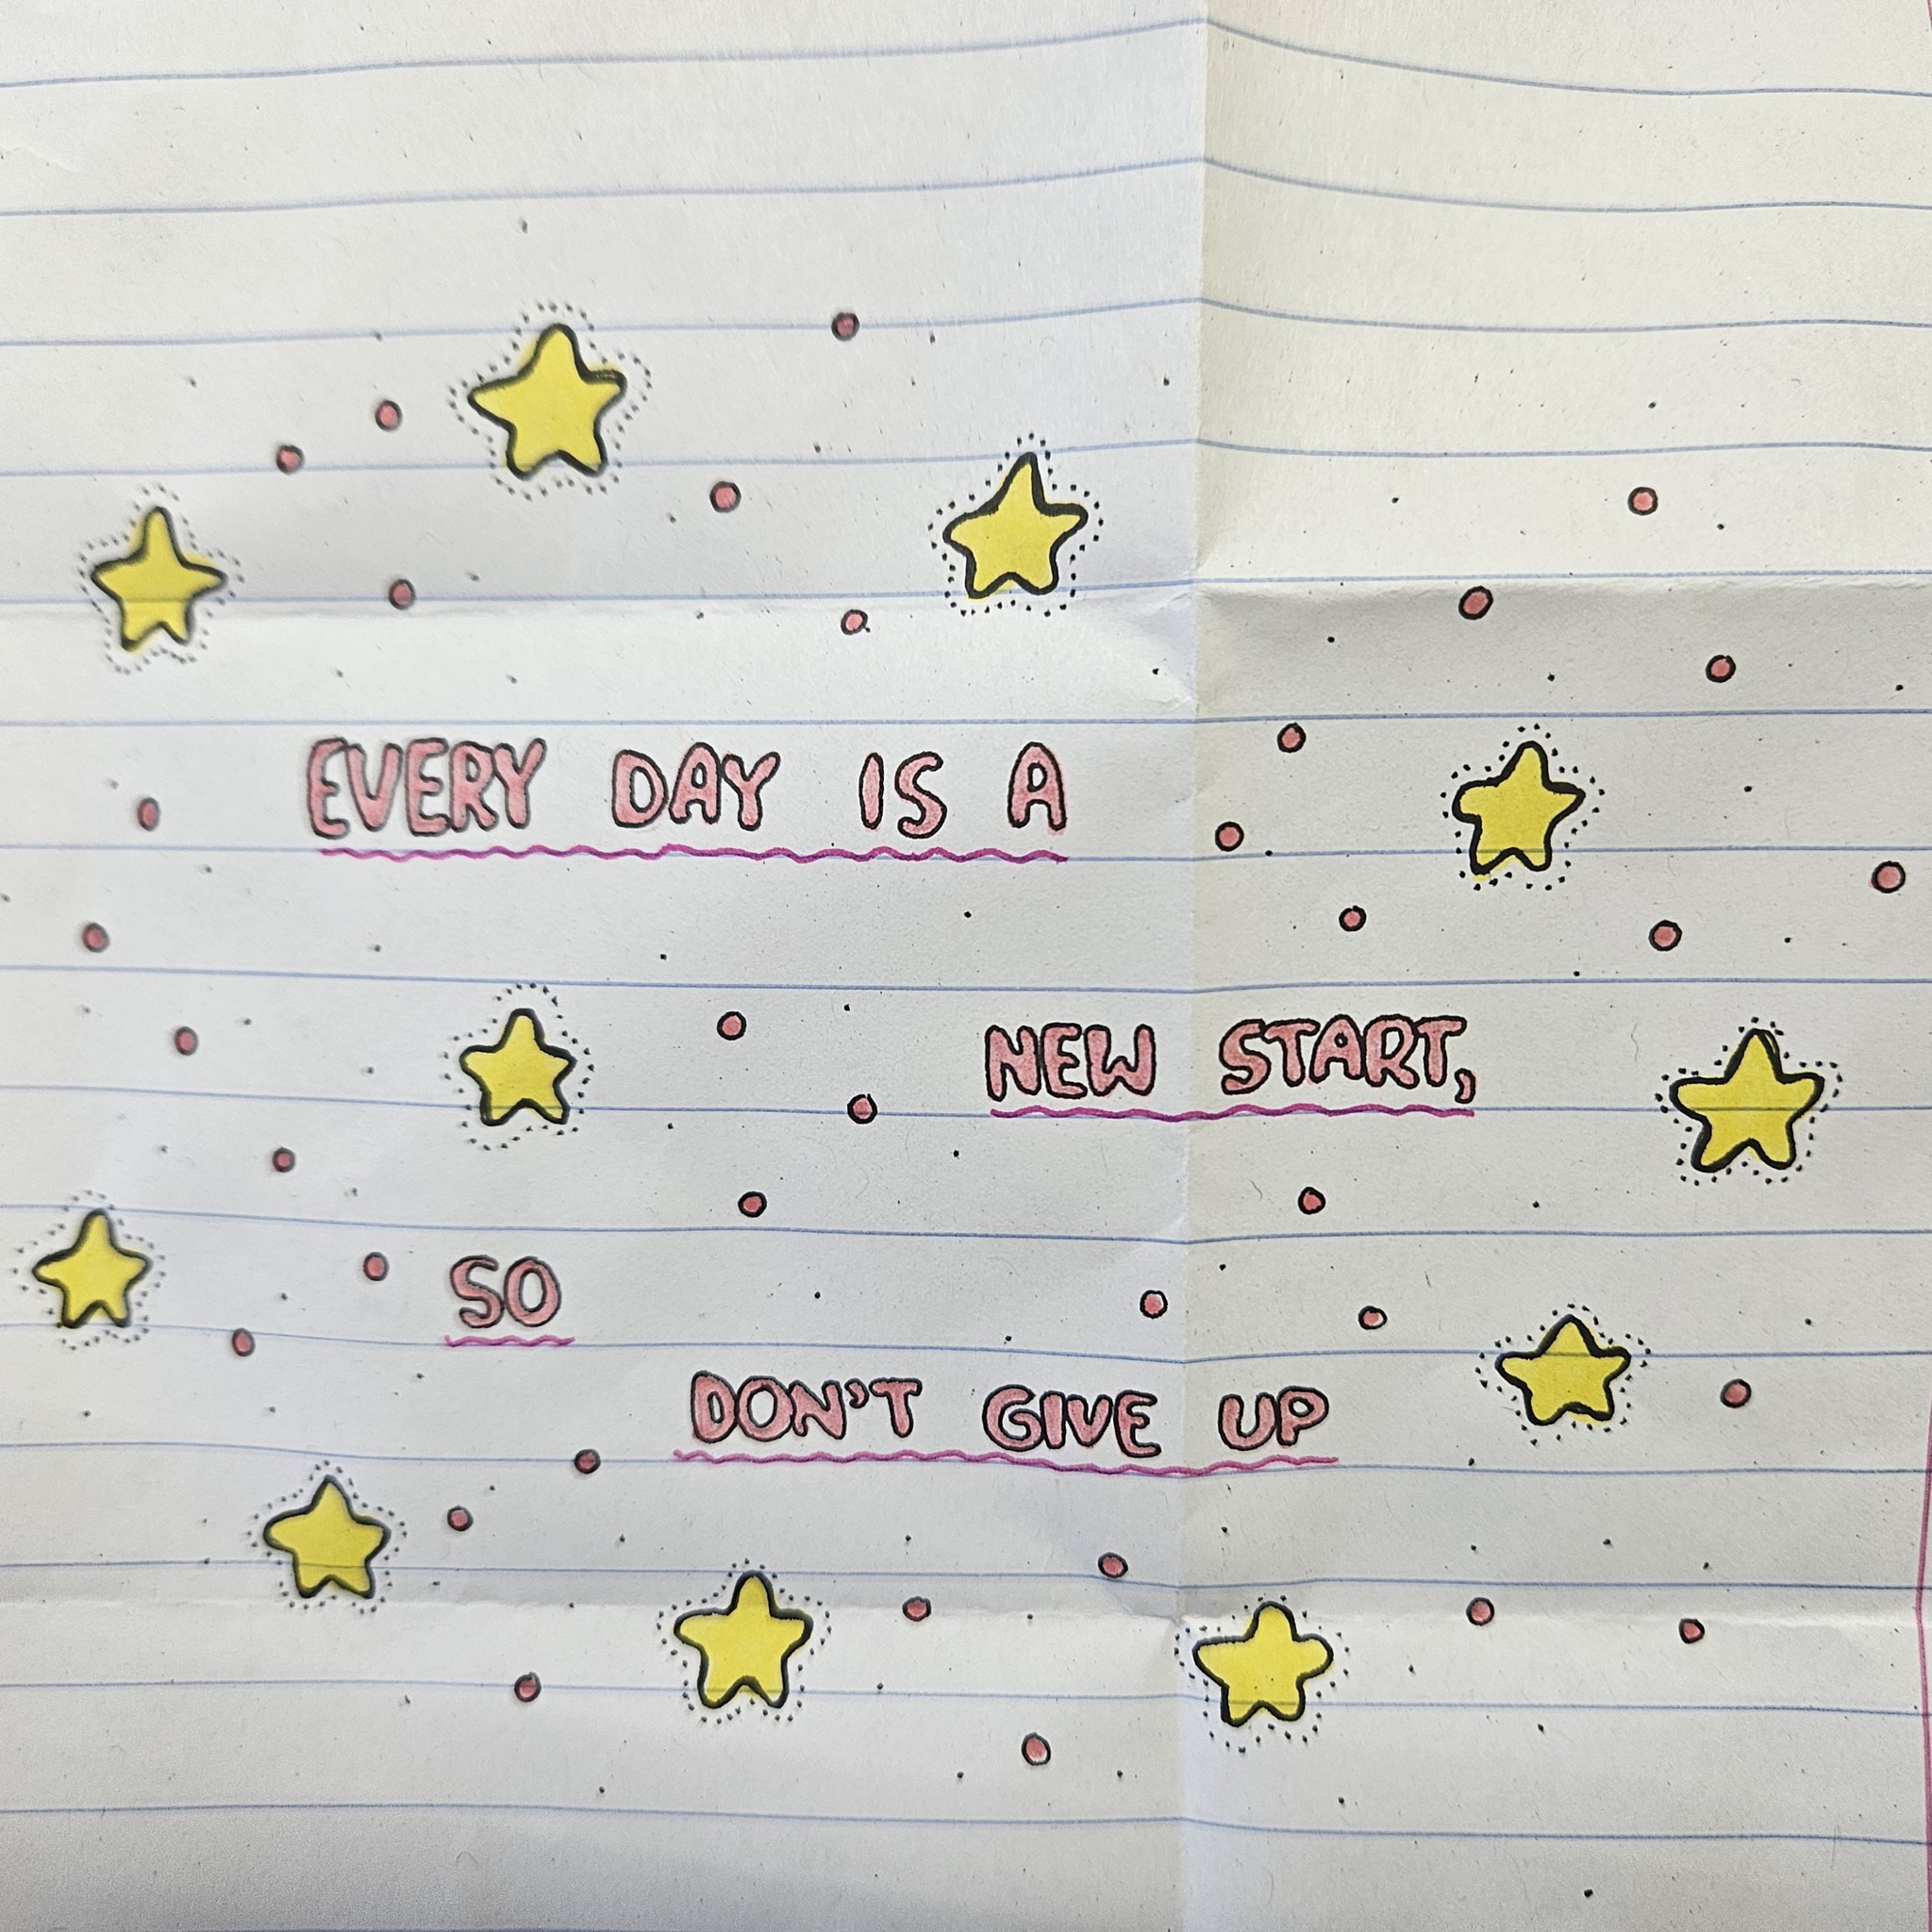 EVERY DAY IS A
NEW START,
SO
DON'T GIVE UP